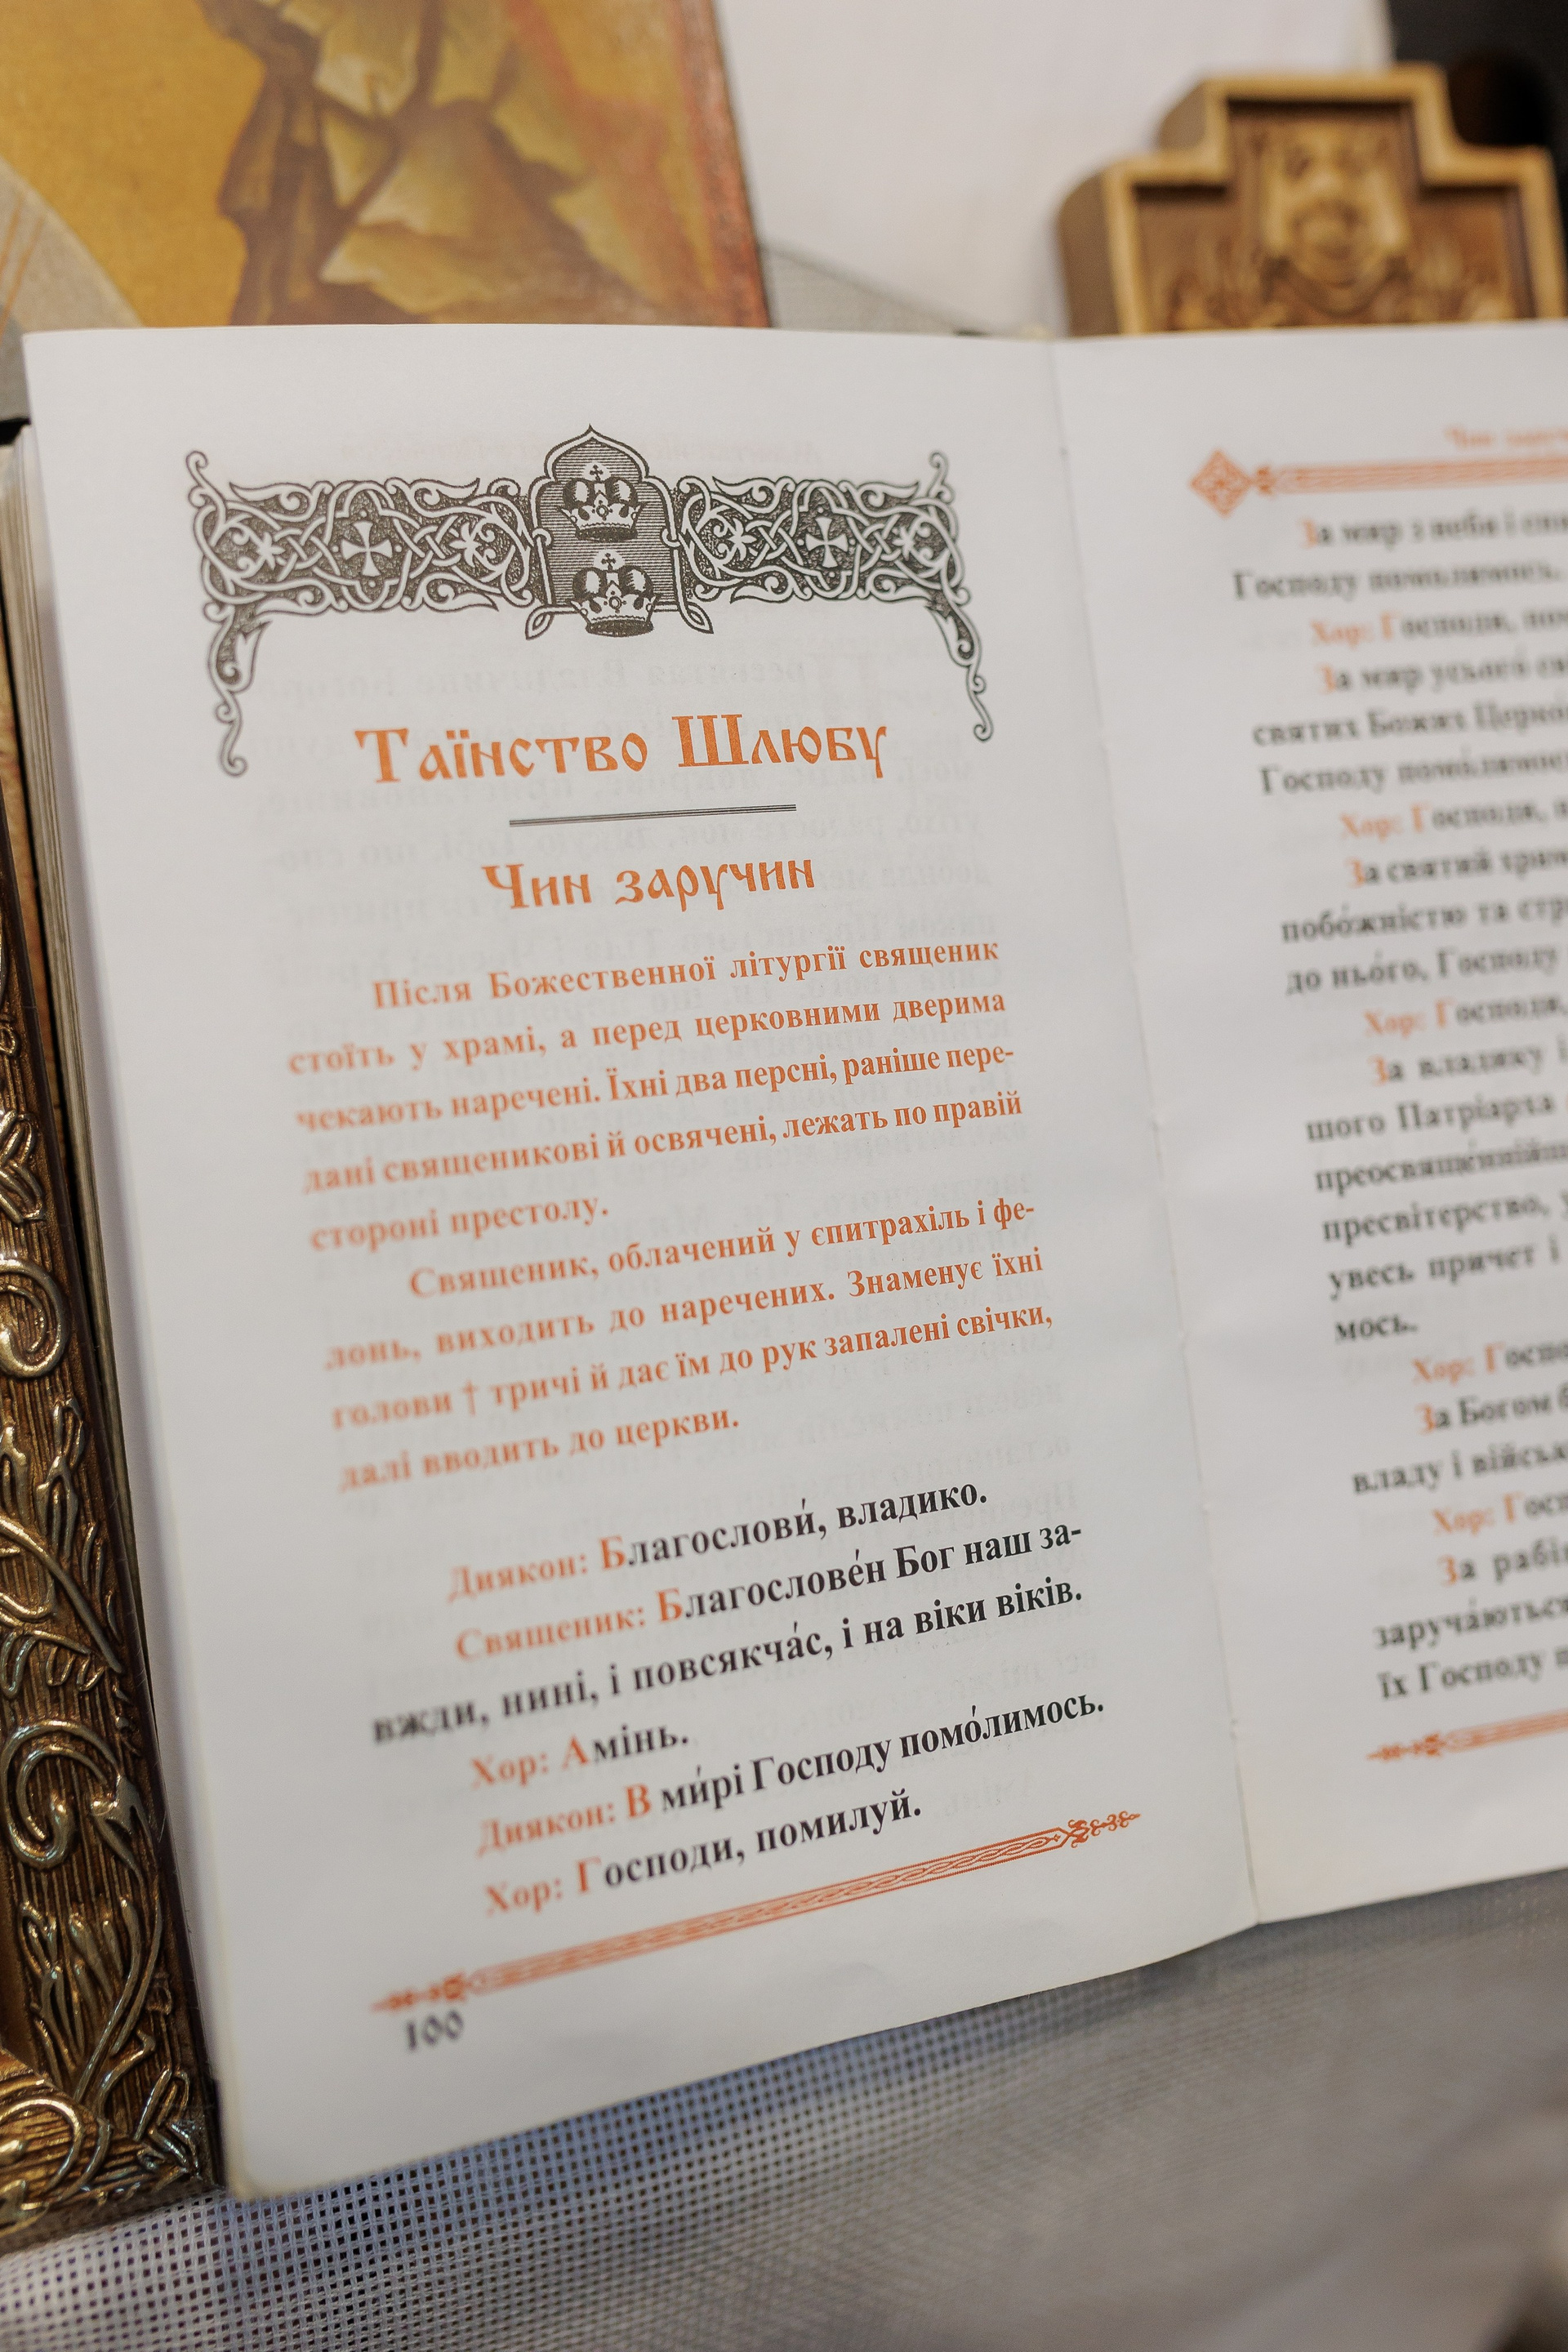 Таїнство Шлюбу
Чин заручин
Після Божественної літургії священик
стоїть у храмі, а перед церковними дверима
чекають наречені. Їхні два персні, раніше пере-
дані священикові й освячені, лежать по правій
стороні престолу.
Священик, облачений у єпитрахіль і фе-
лонь, виходить до наречених. Знаменує їхні
голови † тричі й дає їм до рук запалені свічки,
далі вводить до церкви.
Диякон: Благослови́, владико.
Священик: Благослове́н Бог наш за-
вжди, нині, і повсякча́с, і на віки віків.
Хор: Амінь.
Диякон: В ми́рі Господу помо́лимось.
Хор: Господи, помилуй.
100
За мир з неба і
Господу помолимось.
Хор: Господи,
За мир усього́
святих Божих
Господу помо́лимось
Хор: Господи,
За святий храм
побо́жністю та
до ньо́го, Господу
Хор: Господи,
За владику і
шого Патріарха
пресвітерство,
увесь причет і
мось.
Хор:
За Богом
владу і
Хор:
За рабів
заруча́ються
їх Господу